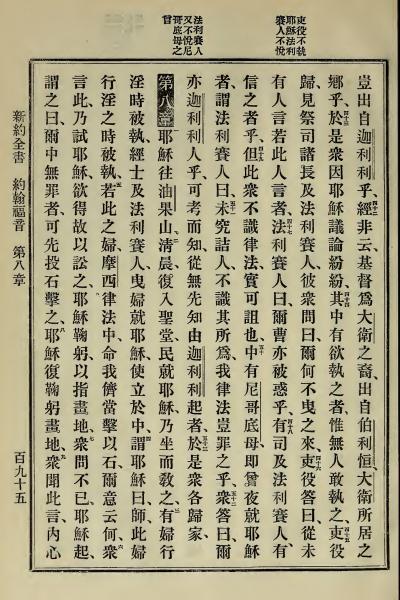 吏役不執
耶穌法利
賽人不悅
法利賽人
又不悅尼
哥底母之
言
豈出自迦利利乎、四十二經非云、基督爲大衛之裔、出自伯利恒、大衛所居之
鄉乎、四十三於是衆因耶穌議論紛紛、四十四其中有欲執之者、惟無人敢執之、四十五吏役
歸見祭司諸長及法利賽人、彼衆問曰、爾何不曳之來、四十六吏役答曰、從未
有人言若此人言者、四十七法利賽人曰、爾曹亦被惑乎、四十八有司及法利賽人、有
信之者乎、四十九但此衆不識律法、實可詛也、五十中有尼哥底母、卽嘗夜就耶穌
者、謂法利賽人曰、五十一未究詰人、不識其所爲、我律法豈罪之乎、五十二衆答曰、爾
亦迦利利人乎、可考而知、從無先知由迦利利起者、五十三於是衆各歸家、
第八章 耶穌往油果山、二淸晨、復入聖堂、民就耶穌、乃坐而敎之、三有婦行
淫時被執、經士及法利賽人、曳婦就耶穌、使立於中、四謂耶穌曰、師、此婦
行淫之時被執、五若此之婦、摩西律法中、命我儕當擊以石、爾意云何、六衆
言此、乃試耶穌、欲得故以訟之、耶穌鞠躬、以指畫地、七衆問不已、耶穌起、
謂之曰、爾中無罪者、可先投石擊之、八耶穌復鞠躬畫地、九衆聞此言、內心
新約全書 約翰福音 第八章 百九十五